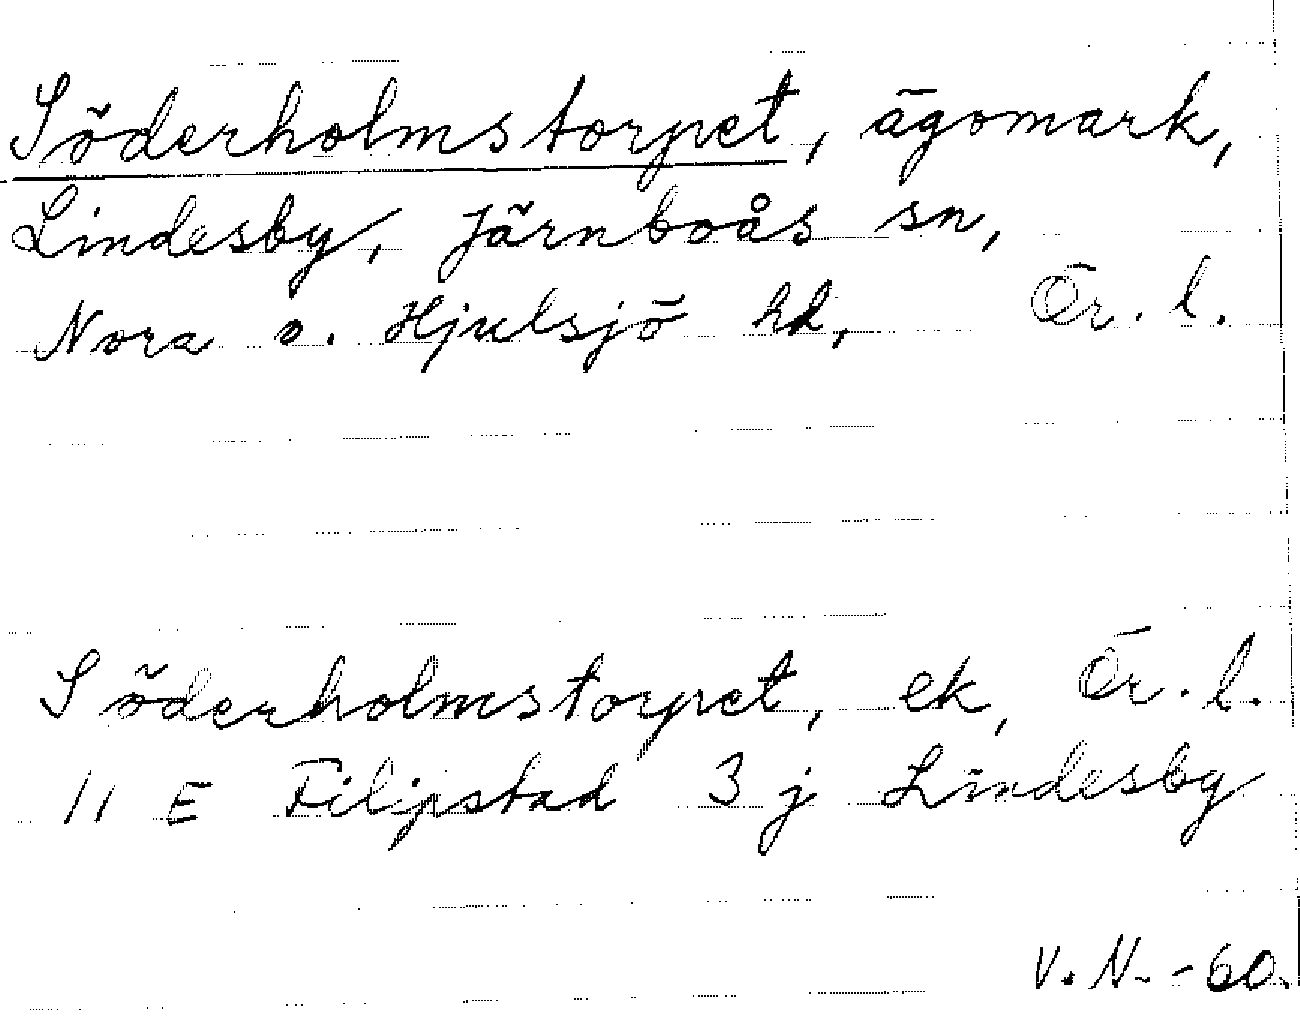 Söderholmstorpet, ägomark,
Lindesby, Järnboås sn,
Nora o. Hjulsjö hd, Ör. l.
Söderholmstorpet, ek, Ör. l.
11 E Filipstad 3 j Lindesby
V. N. -60.